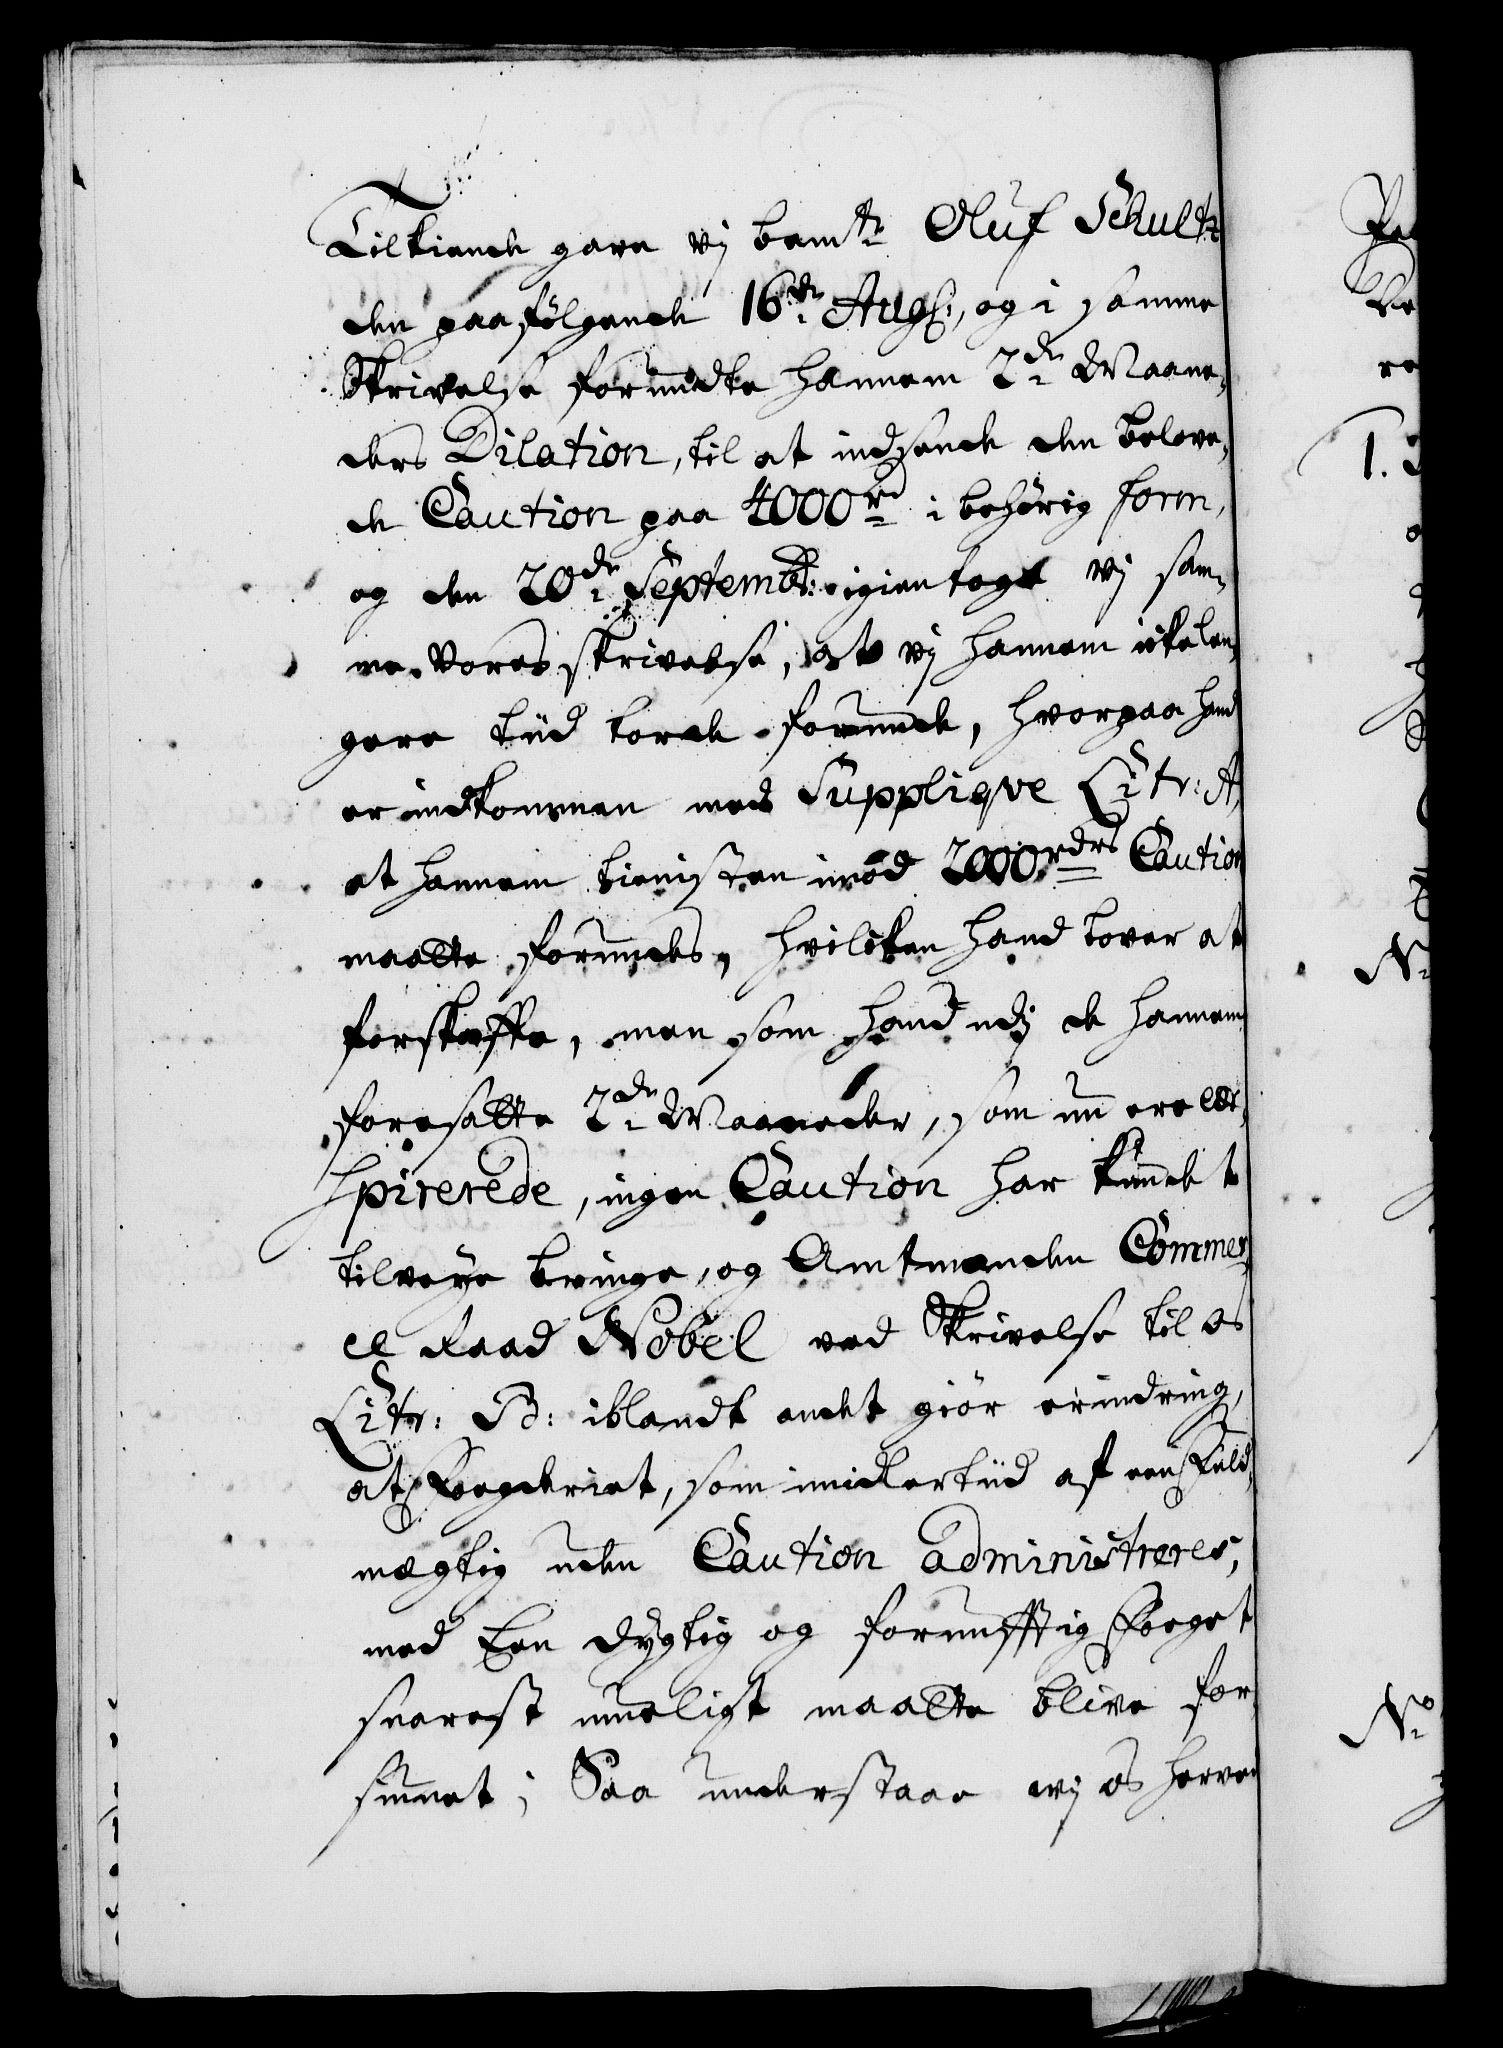 Tilkiende gave vj bem.te Oluf Schultz
den paafølgende 16.de Aug:, og i samme
Skrivelse forundte hannem 2.de Maane-
ders Dilation, til at indsende den belove-
de Caution paa 4000 rd i behörig form,
og den 20.de Septembr: igientoge vj sam-
me Vores skrivelse, at vj hannem ickelen-
gere tiid torde forunde, hvorpaa hand
er indkommen med Supplique Litr: A,
at hannem tienisten imod 2000 rdrs Caution
maatte forundes, hvilcken hand lover at
forskaffe, men som hand udj de hannem
foresatte 2.de Maaneder, som nu ere ex-
spirerede, ingen Caution har kundet
tilveye bringe, og Amtmanden Commer-
ce Raad Nobel ved Skrivelse til os
Litr: B: iblandt andet giör erindring,
at Fogderiet, som imidlertiid af een Fuld-
mægtig uden Caution administreres,
med Een dygtig og fornufftig Foget
snarest mueligt maatte blive for-
siunet; Saa understaae wj os herved